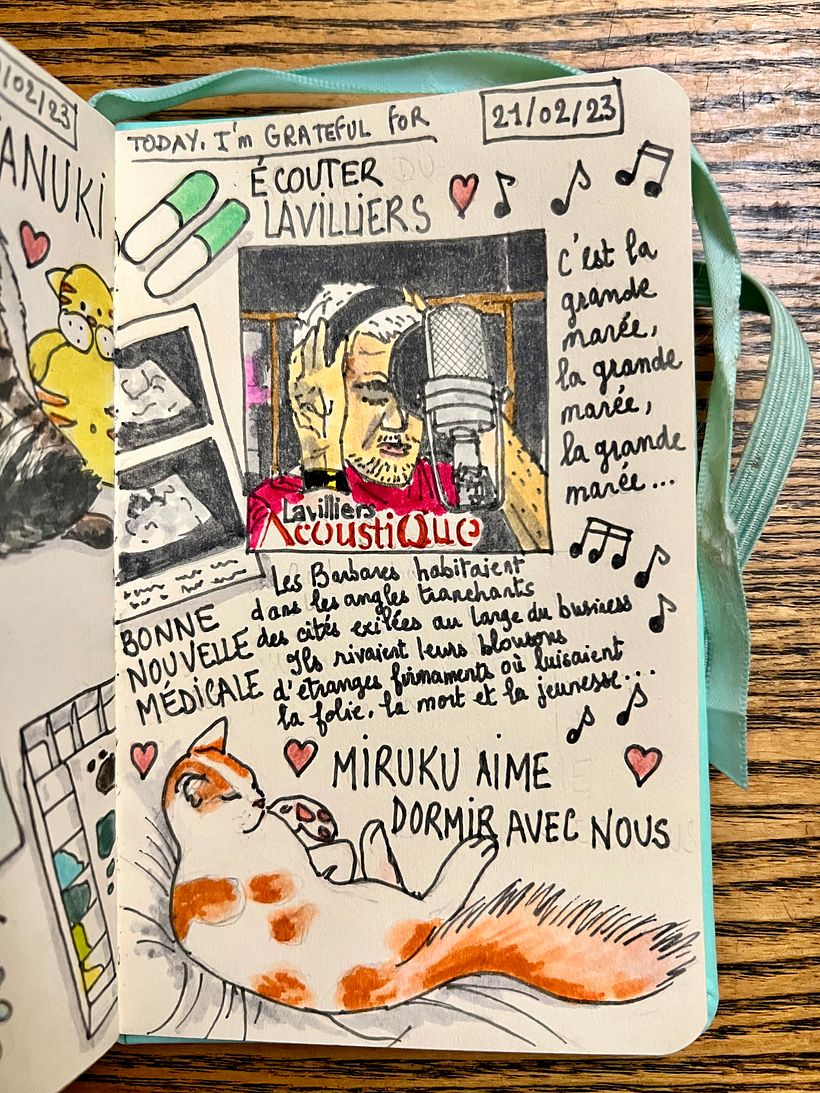 /02/23
ANUKI
TODAY, I'm GRATEFUL FOR
21/02/23
ÉCOUTER
LAVILLIERS
C'est la
grande
marée,
la grande
marée,
la grande
marée...
Lavilliers
AcoustiQue
Les Barbares habitaient
dans les angles tranchants
des cités exilées au large du business
Ils rivaient leurs blousons
d'étranges firmaments où luisaient
la folie, la mort et la jeunesse...
BONNE
NOUVELLE
MÉDICALE
MIRUKU AIME
DORMIR AVEC NOUS